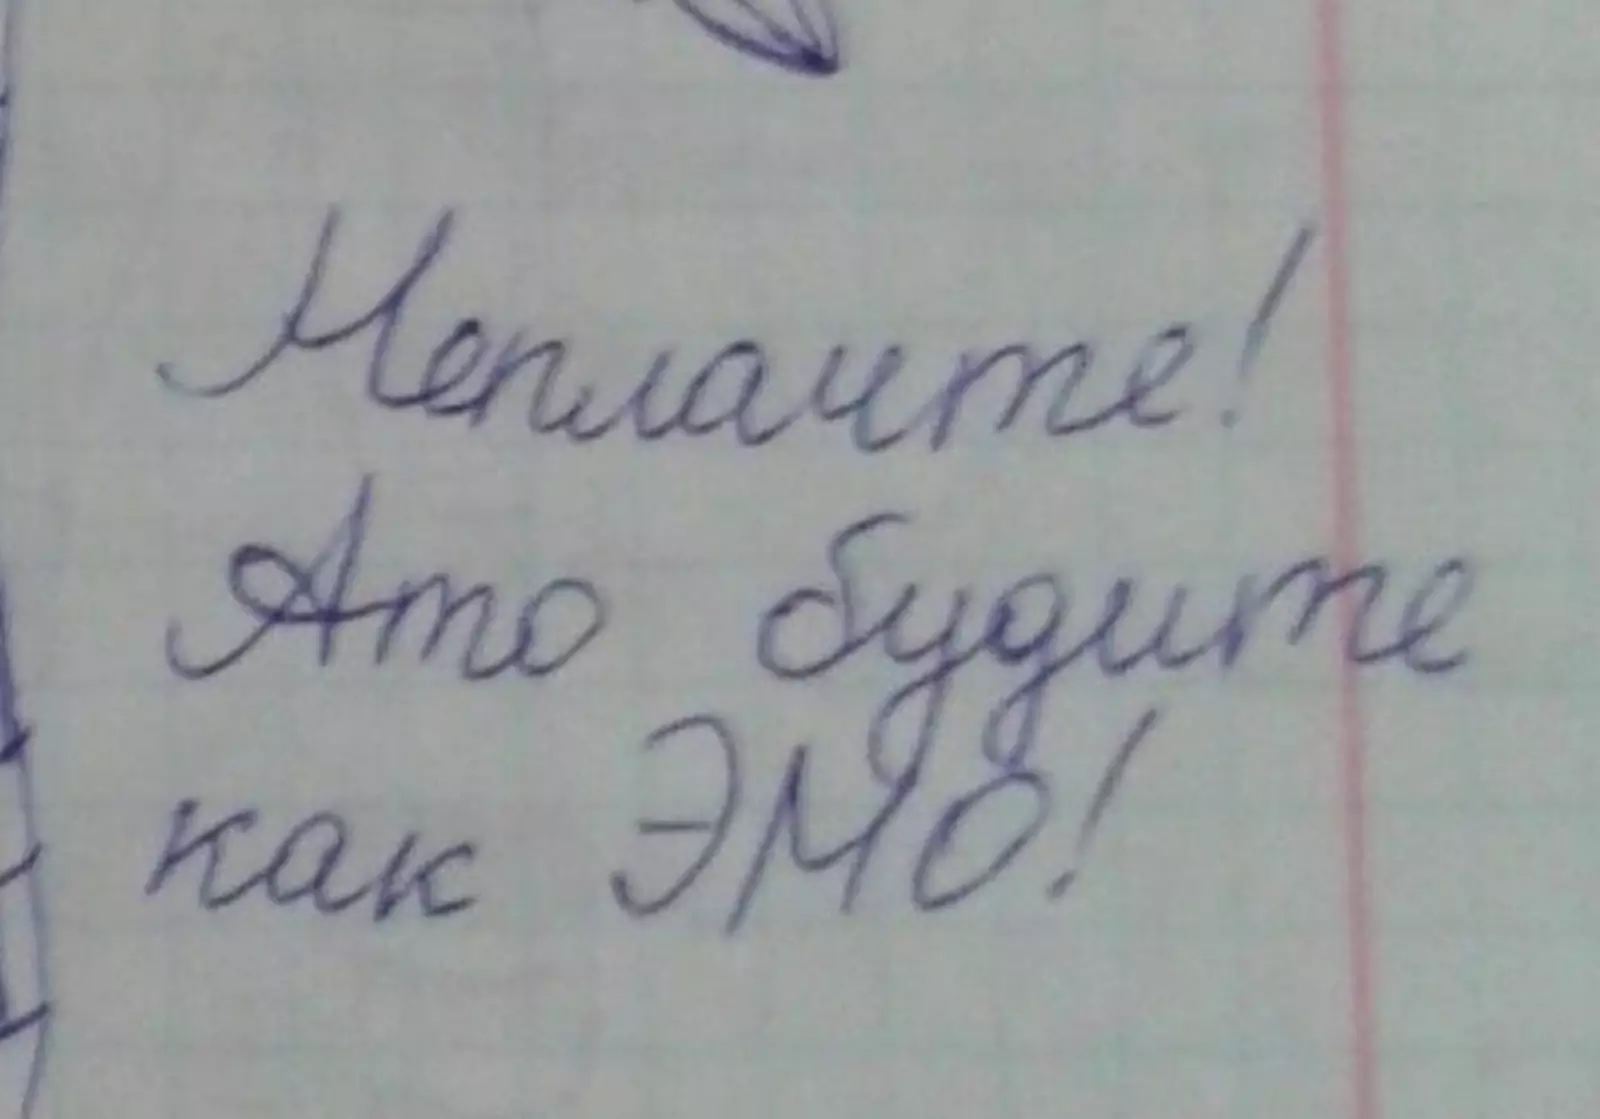 Неплачте!
Ато будите
как ЭМО!